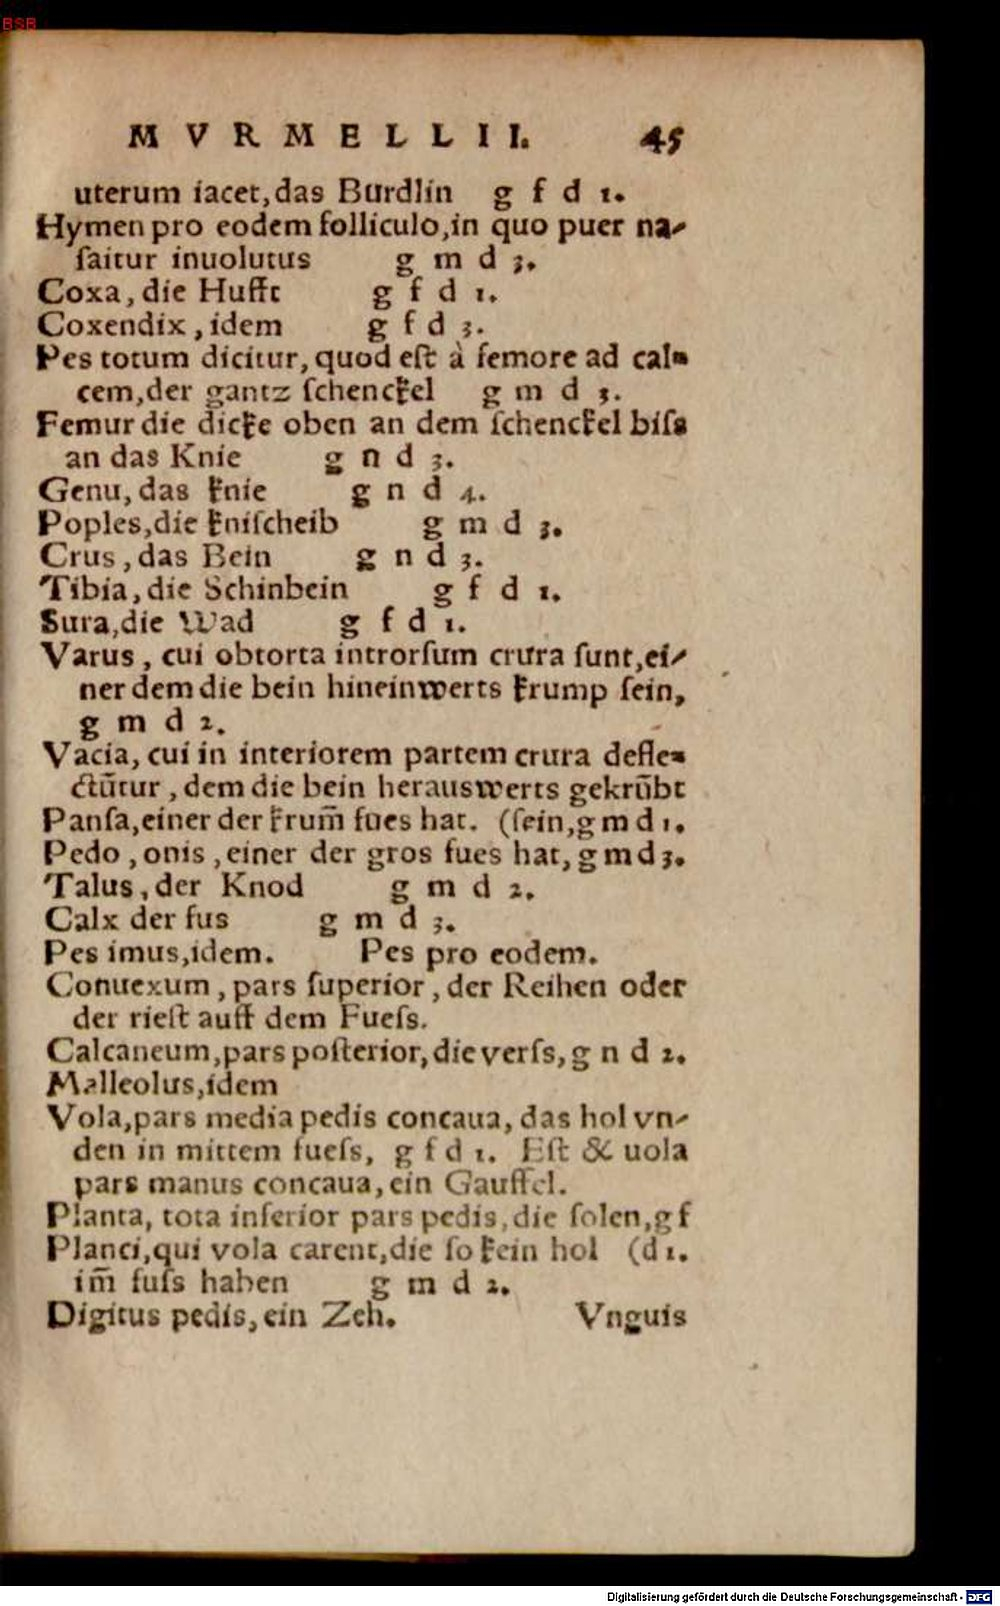 BSB
MVRMELLII. 45
uterum iacet, das Burdlin g f d 1.
Hymen pro eodem folliculo, in quo puer na-
ſaitur inuolutus g m d 3.
Coxa, die Hufft g f d 1.
Coxendix, idem g f d 3.
Pes totum dicitur, quod eſt à femore ad cal=
cem, der gantz ſchenckel g m d 3.
Femur die dicke oben an dem ſchenckel biſs
an das Knie g n d 3.
Genu, das knie g n d 4.
Poples, die kniſcheib g m d 3.
Crus, das Bein g n d 3.
Tibia, die Schinbein g f d 1.
Sura, die Wad g f d 1.
Varus, cui obtorta introrſum crura ſunt, ei-
ner dem die bein hineinwerts krump ſein,
g m d 2.
Vacia, cui in interiorem partem crura defle=
ctūtur, dem die bein herauswerts gekrūbt
Panſa, einer der krum̄ fues hat. (ſein, g m d 1.
Pedo, onis, einer der gros fues hat, g m d 3.
Talus, der Knod g m d 2.
Calx der fus g m d 3.
Pes imus, idem. Pes pro eodem.
Conuexum, pars ſuperior, der Reihen oder
der rieſt auff dem Fueſs.
Calcaneum, pars poſterior, die verſs, g n d 2.
Malleolus, idem
Vola, pars media pedis concaua, das hol vn-
den in mittem fueſs, g f d 1. Eſt & uola
pars manus concaua, ein Gauffel.
Planta, tota inferior pars pedis, die ſolen, g f
Planci, qui vola carent, die ſo kein hol (d 1.
im̄ fuſs haben g m d 2.
Digitus pedis, ein Zeh. Vnguis
Digitalisierung gefördert durch die Deutsche Forschungsgemeinschaft - DFG